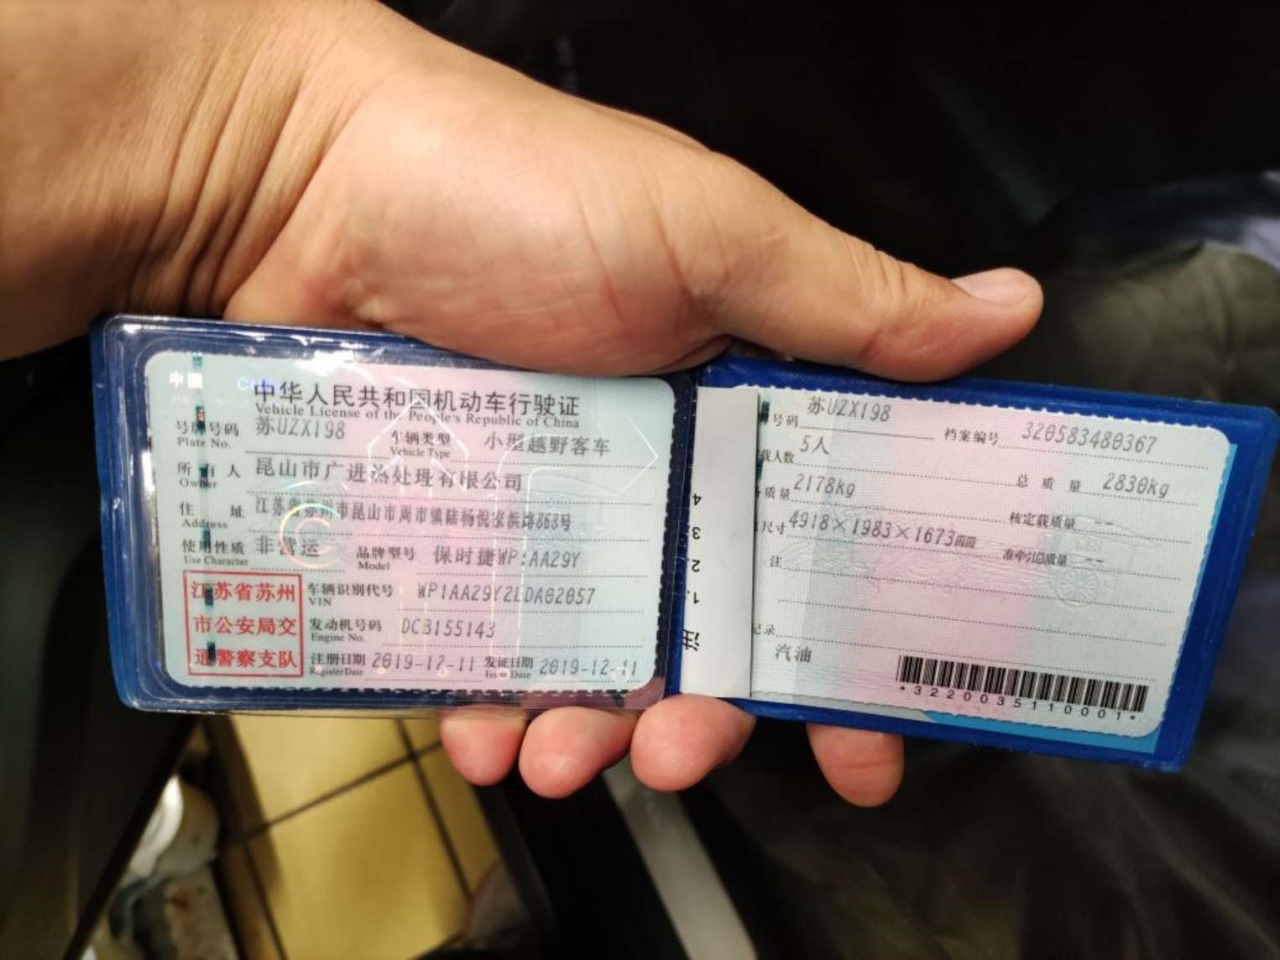 中国
中华人民共和国机动车行驶证
Vehicle License of the People's Republic of China
号牌号码 苏UZX198 车辆类型 小型越野客车
Plate No. Vehicle Type
所有人 昆山市广进热处理有限公司
Owner
住址 江苏省苏州市昆山市周市镇陆杨倪家浜路868号
Address
使用性质 非营运 品牌型号 保时捷WP1AA29Y
Use Character Model
江苏省苏州
市公安局交
通警察支队
车辆识别代号 WP1AA29Y2LDA02057
VIN
发动机号码 DCB155143
Engine No.
注册日期 2019-12-11 发证日期 2019-12-11
Register Date Issue Date
4
3.
2.
1.
注
号码 苏UZX198 档案编号 320583480367
载人数 5人 总质量 2830kg
质量 2178kg 核定载质量 --
尺寸 4918×1983×1673mm 准牵引总质量 --
注
记录
汽油
*3220035110001*